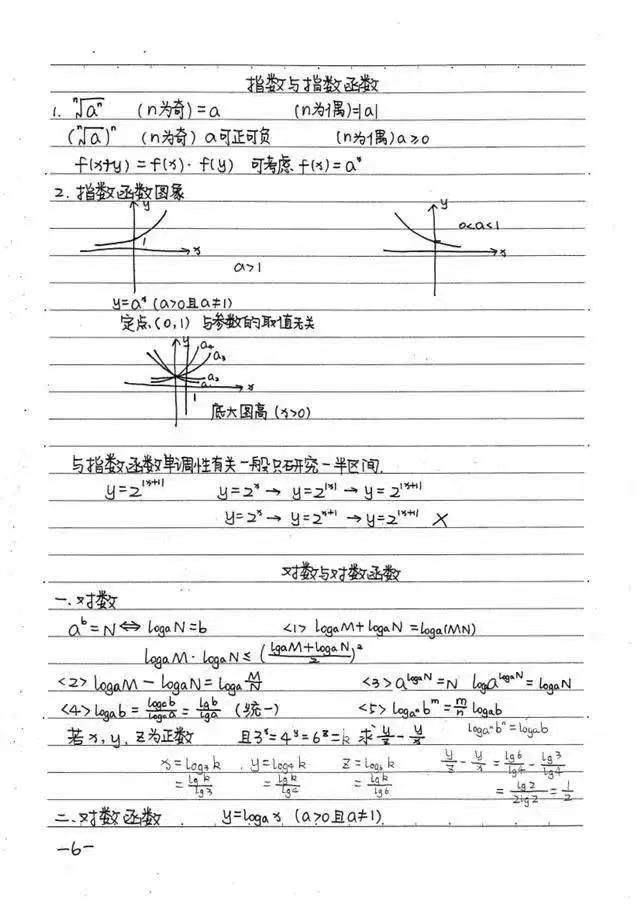 指数与指数函数
1. ⁿ√aⁿ (n为奇)=a (n为偶)=|a|
(ⁿ√a)ⁿ (n为奇) a可正可负 (n为偶) a≥0
f(x+y)=f(x)·f(y) 可考虑 f(x)=aˣ
2. 指数函数图象
y y
1 0<a<1
x x
a>1
y=aˣ (a>0且a≠1)
定点(0,1) 与参数的取值无关
y a₄
a₃
a₂
a₁ x
1
底大图高(x>0)
与指数函数单调性有关一般只研究一半区间.
y=2^|x+1| y=2ˣ → y=2^|x| → y=2^|x+1|
y=2ˣ → y=2^(x+1) → y=2^|x+1| ×
对数与对数函数
一.对数
aᵇ=N⇔logaN=b <1> logaM+logaN=loga(MN)
logaM·logaN≤(lgaM+logaN/2)²
<2> logaM-logaN=loga M/N <3> a^logaN=N logaa^logaN=logaN
<4> logab=logcb/logca=lgb/lga (统一) <5> logaⁿbᵐ=m/n logab
若x,y,z为正数 且3ˣ=4ʸ=6ᶻ=k 求y/z-y/x logaⁿbⁿ=logab
x=log₃k y=log₄k z=log₆k y/z-y/x=lg6/lg4-lg3/lg4
=lgk/lg3 =lgk/lg4 =lgk/lg6 =lg2/2lg2=1/2
二.对数函数 y=logax (a>0且a≠1)
-6-